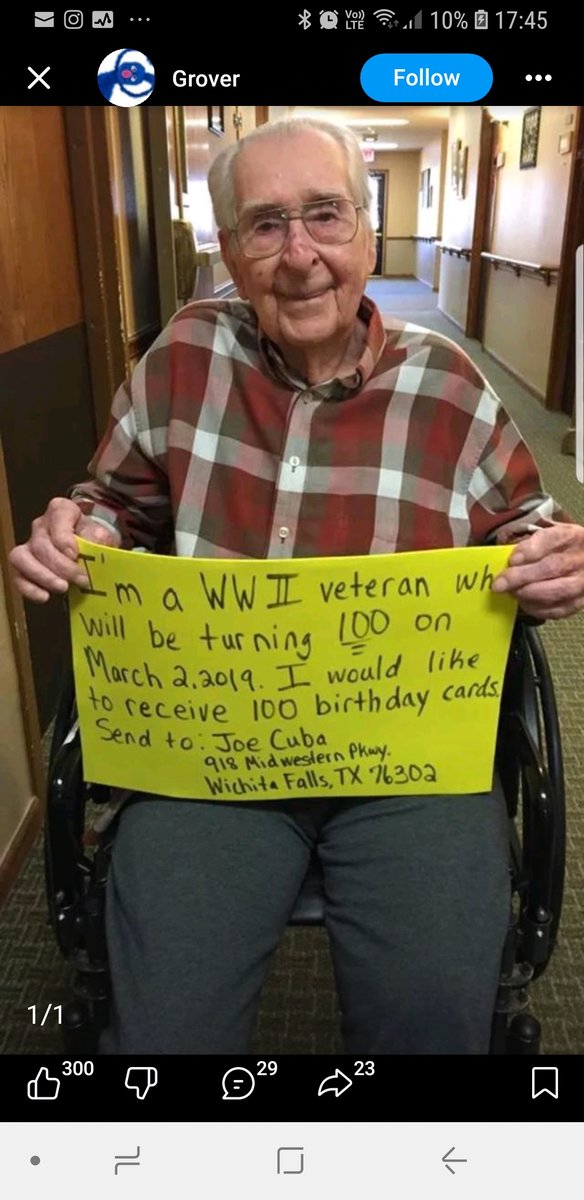 Vo))
LTE
10%
17:45
Grover
Follow
I'm a WW II veteran wh
will be turning 100 on
March 2, 2019. I would like
to receive 100 birthday cards.
Send to: Joe Cuba
918 Midwestern Pkwy.
Wichita Falls, TX 76302
1/1
300
29
23